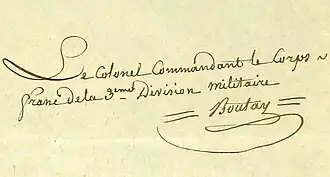 Le Colonel Commandant le Corps
franc de la 3eme Division militaire
Boutay